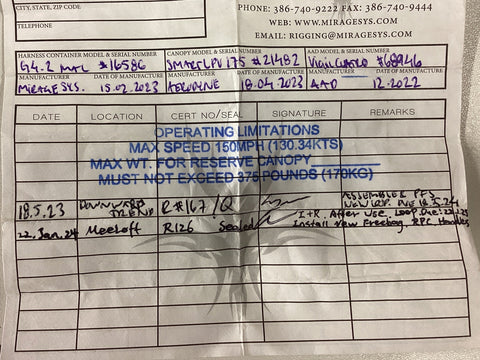 CITY, STATE, ZIP CODE
PHONE: 386-740-9222 FAX: 386-740-9444
WEB: WWW.MIRAGESYS.COM
TELEPHONE
EMAIL: RIGGING@MIRAGESYS.COM
HARNESS CONTAINER MODEL & SERIAL NUMBER CANOPY MODEL & SERIAL NUMBER AAD MODEL & SERIAL NUMBER
G4.2 #16586 SMART LPV 175 #21482 #68946
MANUFACTURER DATE OF MANUFACTURE MANUFACTURER DATE OF MANUFACTURE MANUFACTURER DATE OF MANUFACTURE
MIRAGE SYS. 15.02.2023 AERODYNE 18.04.2023 AAD 12.2022
DATE LOCATION CERT NO/SEAL SIGNATURE REMARKS
OPERATING LIMITATIONS
MAX SPEED 150MPH (130.34KTS)
MAX WT. FOR RESERVE CANOPY
MUST NOT EXCEED 375 POUNDS (170KG)
18.5.23 R#167/Q ASSEMBLED
22. Jan. 24 R126 Sealed I+R. After use. Loop
Install New Freebag, RPC, Handles